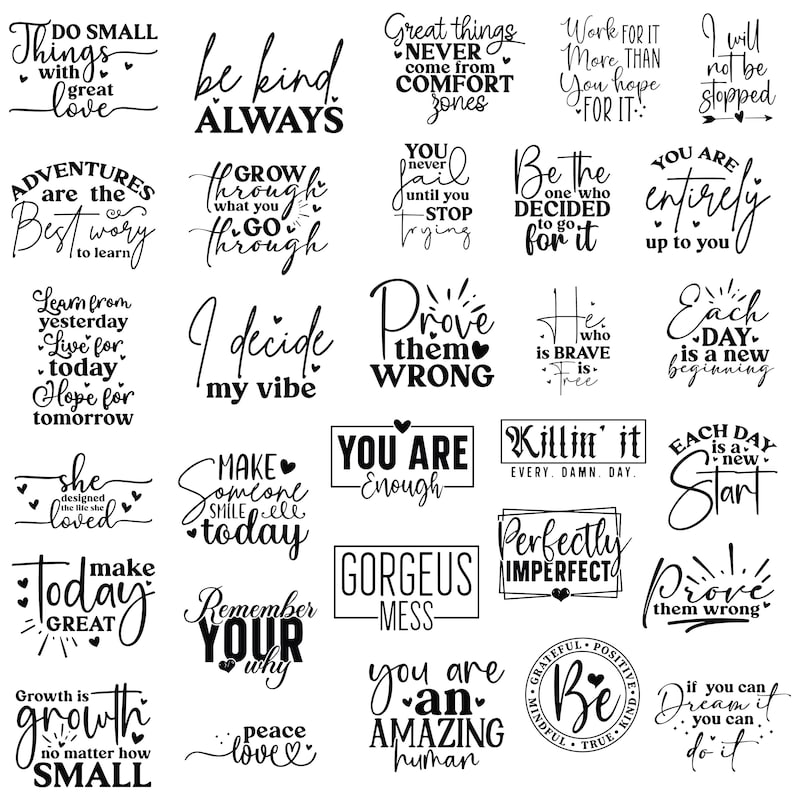 DO SMALL
Things
with
great
love
be kind
ALWAYS
Great things
NEVER
come from
COMFORT
zones
Work FOR IT
More THAN
You hope
FOR IT
I will
not be
stopped
ADVENTURES
are the
Best wory
to learn
GROW
through
what you
GO
through
YOU
never
fail
until you
STOP
trying
Be the
one who
DECIDED
to go
for it
YOU ARE
entirely
up to you
Learn from
yesterday
Live for
today
Hope for
tomorrow
I decide
my vibe
Prove
them
WRONG
He
who
is BRAVE
is
Free
Each
DAY
is a new
beginning
she
designed
the life she
loved
MAKE
Someone
SMILE
today
YOU ARE
Enough
Killin' it
EVERY. DAMN. DAY.
EACH DAY
is a
new
Start
make
Today
GREAT
Remember
YOUR
why
GORGEUS
MESS
Perfectly
IMPERFECT
Prove
them wrong
Growth is
growth
no matter how
SMALL
peace
love
you are
an
AMAZING
human
GRATEFUL • POSITIVE • KIND • TRUE • MINDFUL •
Be
if you can
Dream it
you can
do it